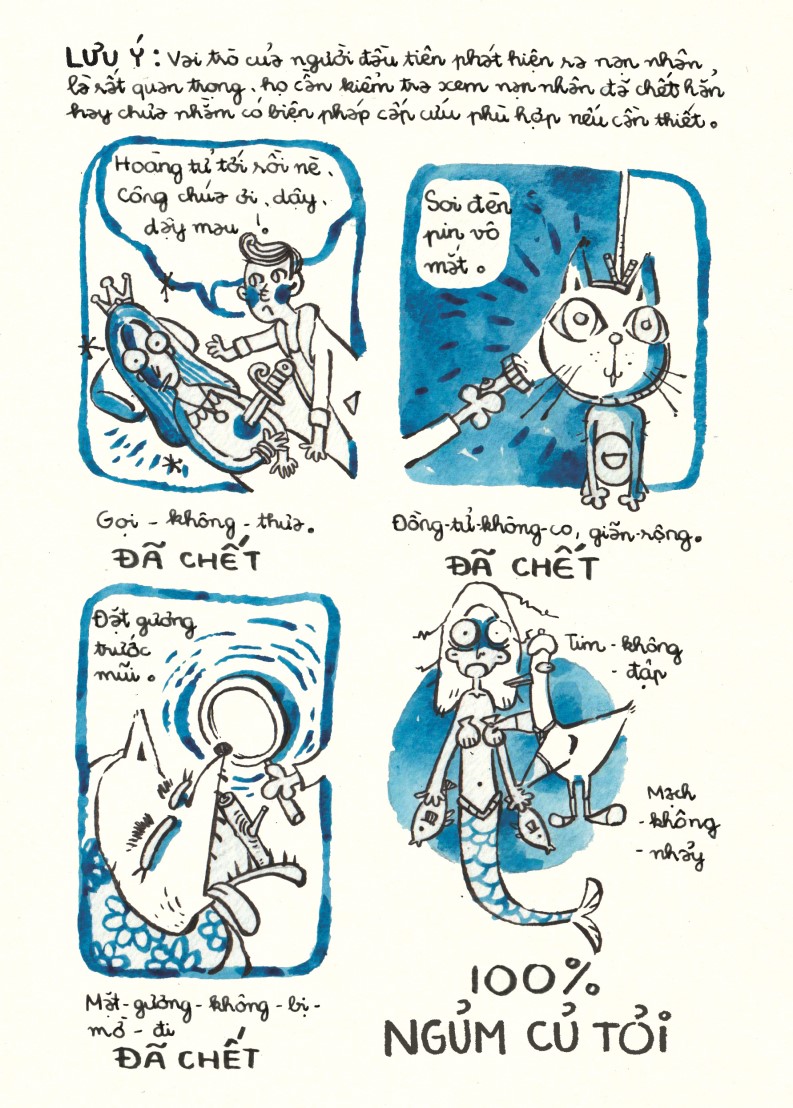 LƯU Ý : Vai trò của người đầu tiên phát hiện ra nạn nhân,
là rất quan trọng, họ cần kiểm tra xem nạn nhân đã chết hẳn
hay chưa nhằm có biện pháp cấp cứu phù hợp nếu cần thiết.
Hoàng tử tới rồi nè.
Công chúa ơi, dậy,
dậy mau !.
Soi đèn
pin vô
mắt.
Gọi - không - thưa.
ĐÃ CHẾT
Đồng-tử-không-co, giãn-rộng.
ĐÃ CHẾT
Đặt gương
trước
mũi.
Tim - không
- đập
Mạch
- không
- nhảy
Mặt-gương-không-bị-
mờ-đi
ĐÃ CHẾT
100%
NGỦM CỦ TỎI